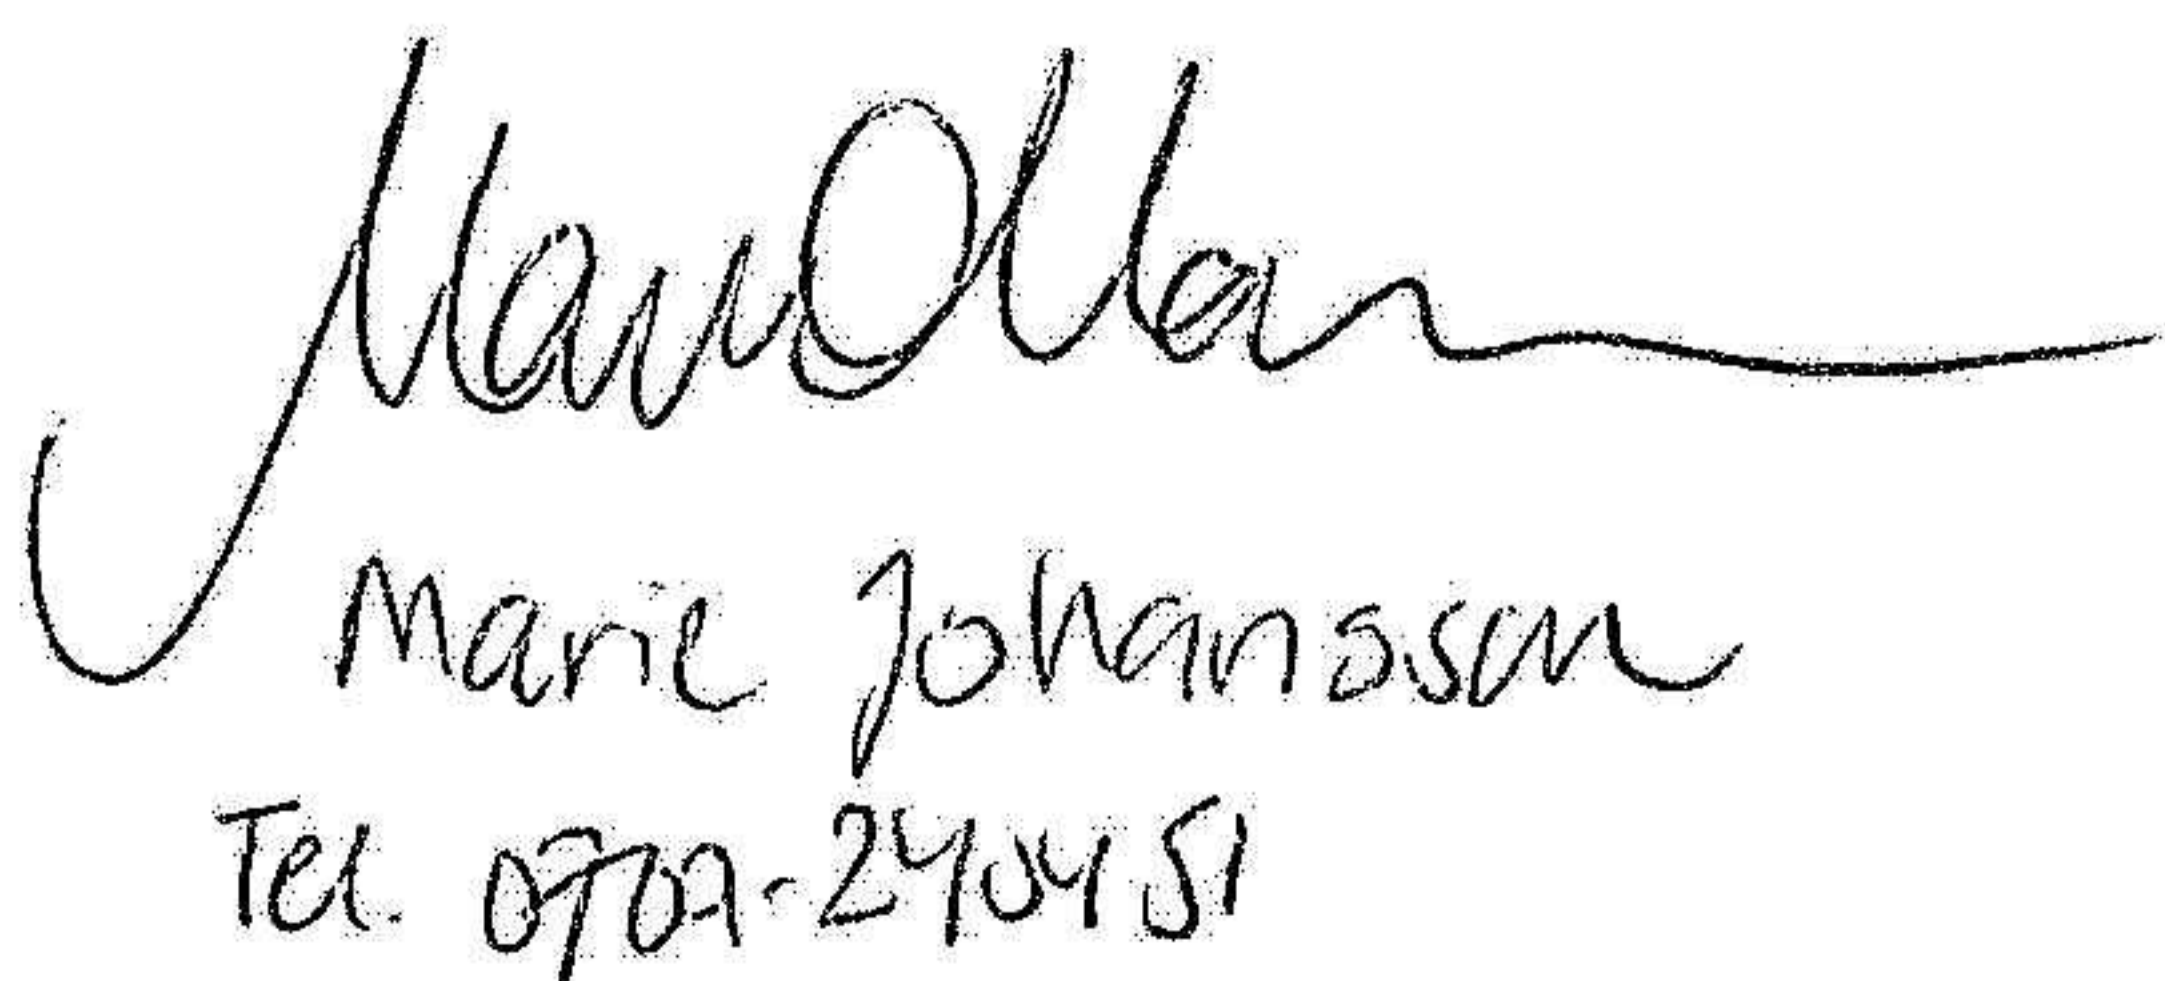 Marie Johansson
Tel. 0707-240451